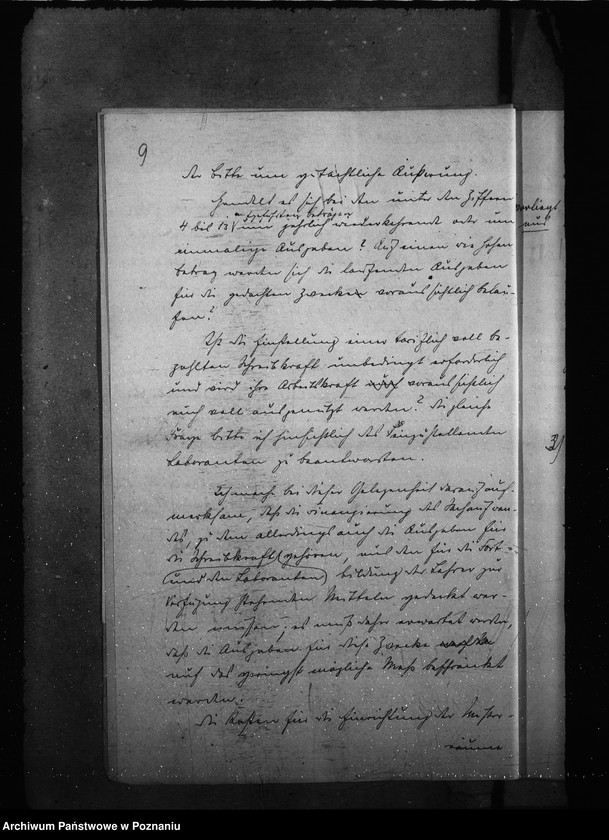 9
der bitte um gutachtliche Äußerung.
Handelt es sich bei den unter den Ziffern
vorliegt
aus
eingesetzten Beträgen
4 bis 13 um jährlich wiederkehrende oder um
einmalige Ausgaben? Auf einen wie hohen
Betrag werden sich die laufenden Ausgaben
für die gedachten Zwecke voraussichtlich belau-
fen?
Ist die Einstellung einer tariflich voll be-
zahlten Schreibkraft unbedingt erforderlich
und wird ihre Arbeitskraft auch voraussichtlich
auch voll ausgenützt werden? Die gleiche
Frage bitte ich hinsichtlich des einzustellenden
3)
Laboranten zu beantworten.
Ich mache bei dieser Gelegenheit darauf auf-
merksam, daß die Finanzierung des Sachaufwan-
des, zu dem allerdings auch die Ausgaben für
die Schreibkraft gehören, aus den für die Fort-
und den Laboranten
bildung der Lehrer zur
Verfügung stehenden Mitteln gedeckt wer-
den müssen; es muß daher erwartet werden,
daß die Ausgaben für diese Zwecke
auf das geringst mögliche Maß beschränkt
werden.
Die Kosten für die Einrichtung der
räume
Archiwum Państwowe w Poznaniu